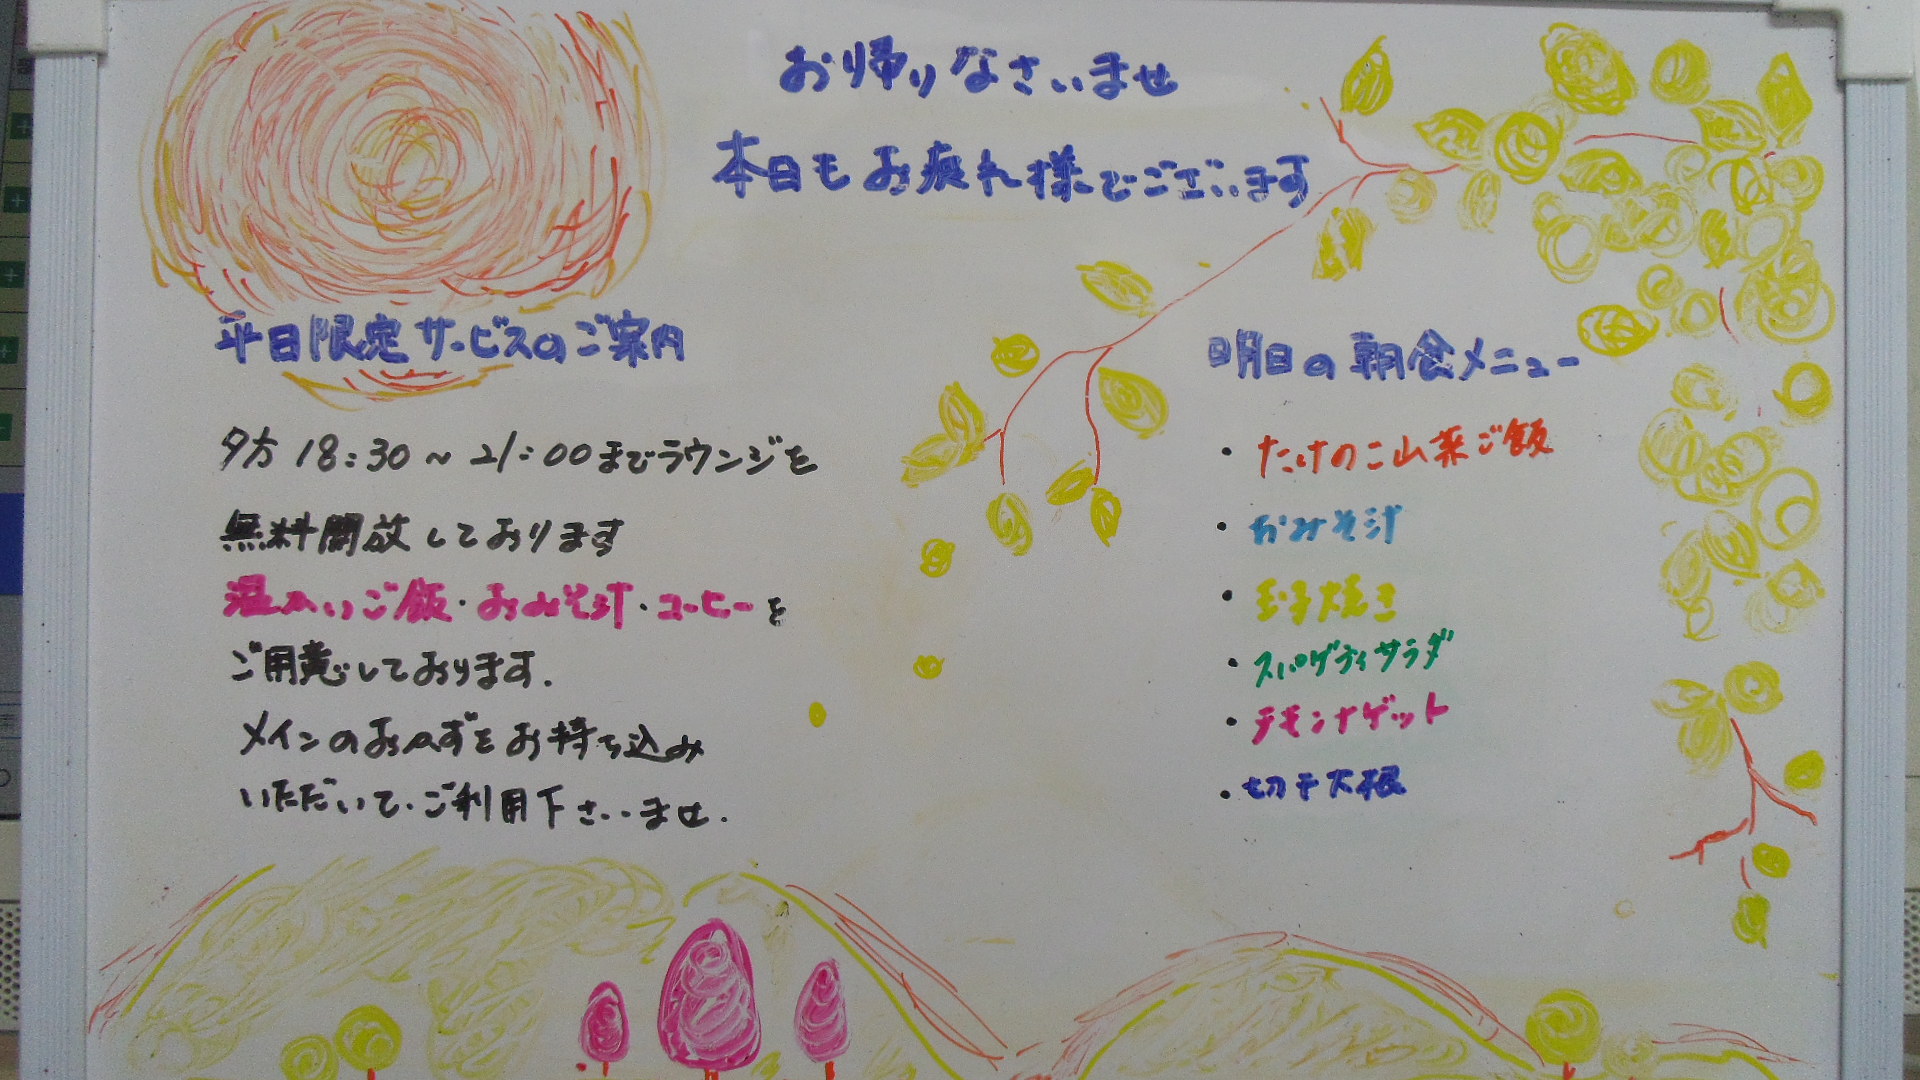 お帰りなさいませ
本日もお疲れ様でございます
平日限定サービスのご案内
夕方 18:30~21:00までラウンジを
無料開放しております
温かいご飯・おみそ汁・コーヒーを
ご用意しております.
メインのおかずをお持ち込み
いただいて.ご利用下さいませ.
明日の朝食メニュー
・たけのこ山菜ご飯
・おみそ汁
・玉子焼き
・スパゲティサラダ
・チキンナゲット
・切干大根